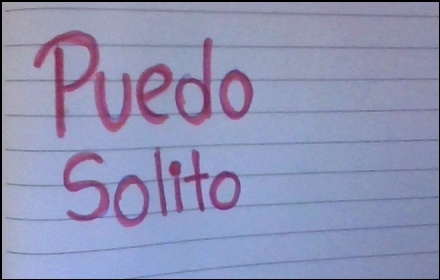 Puedo
Solito